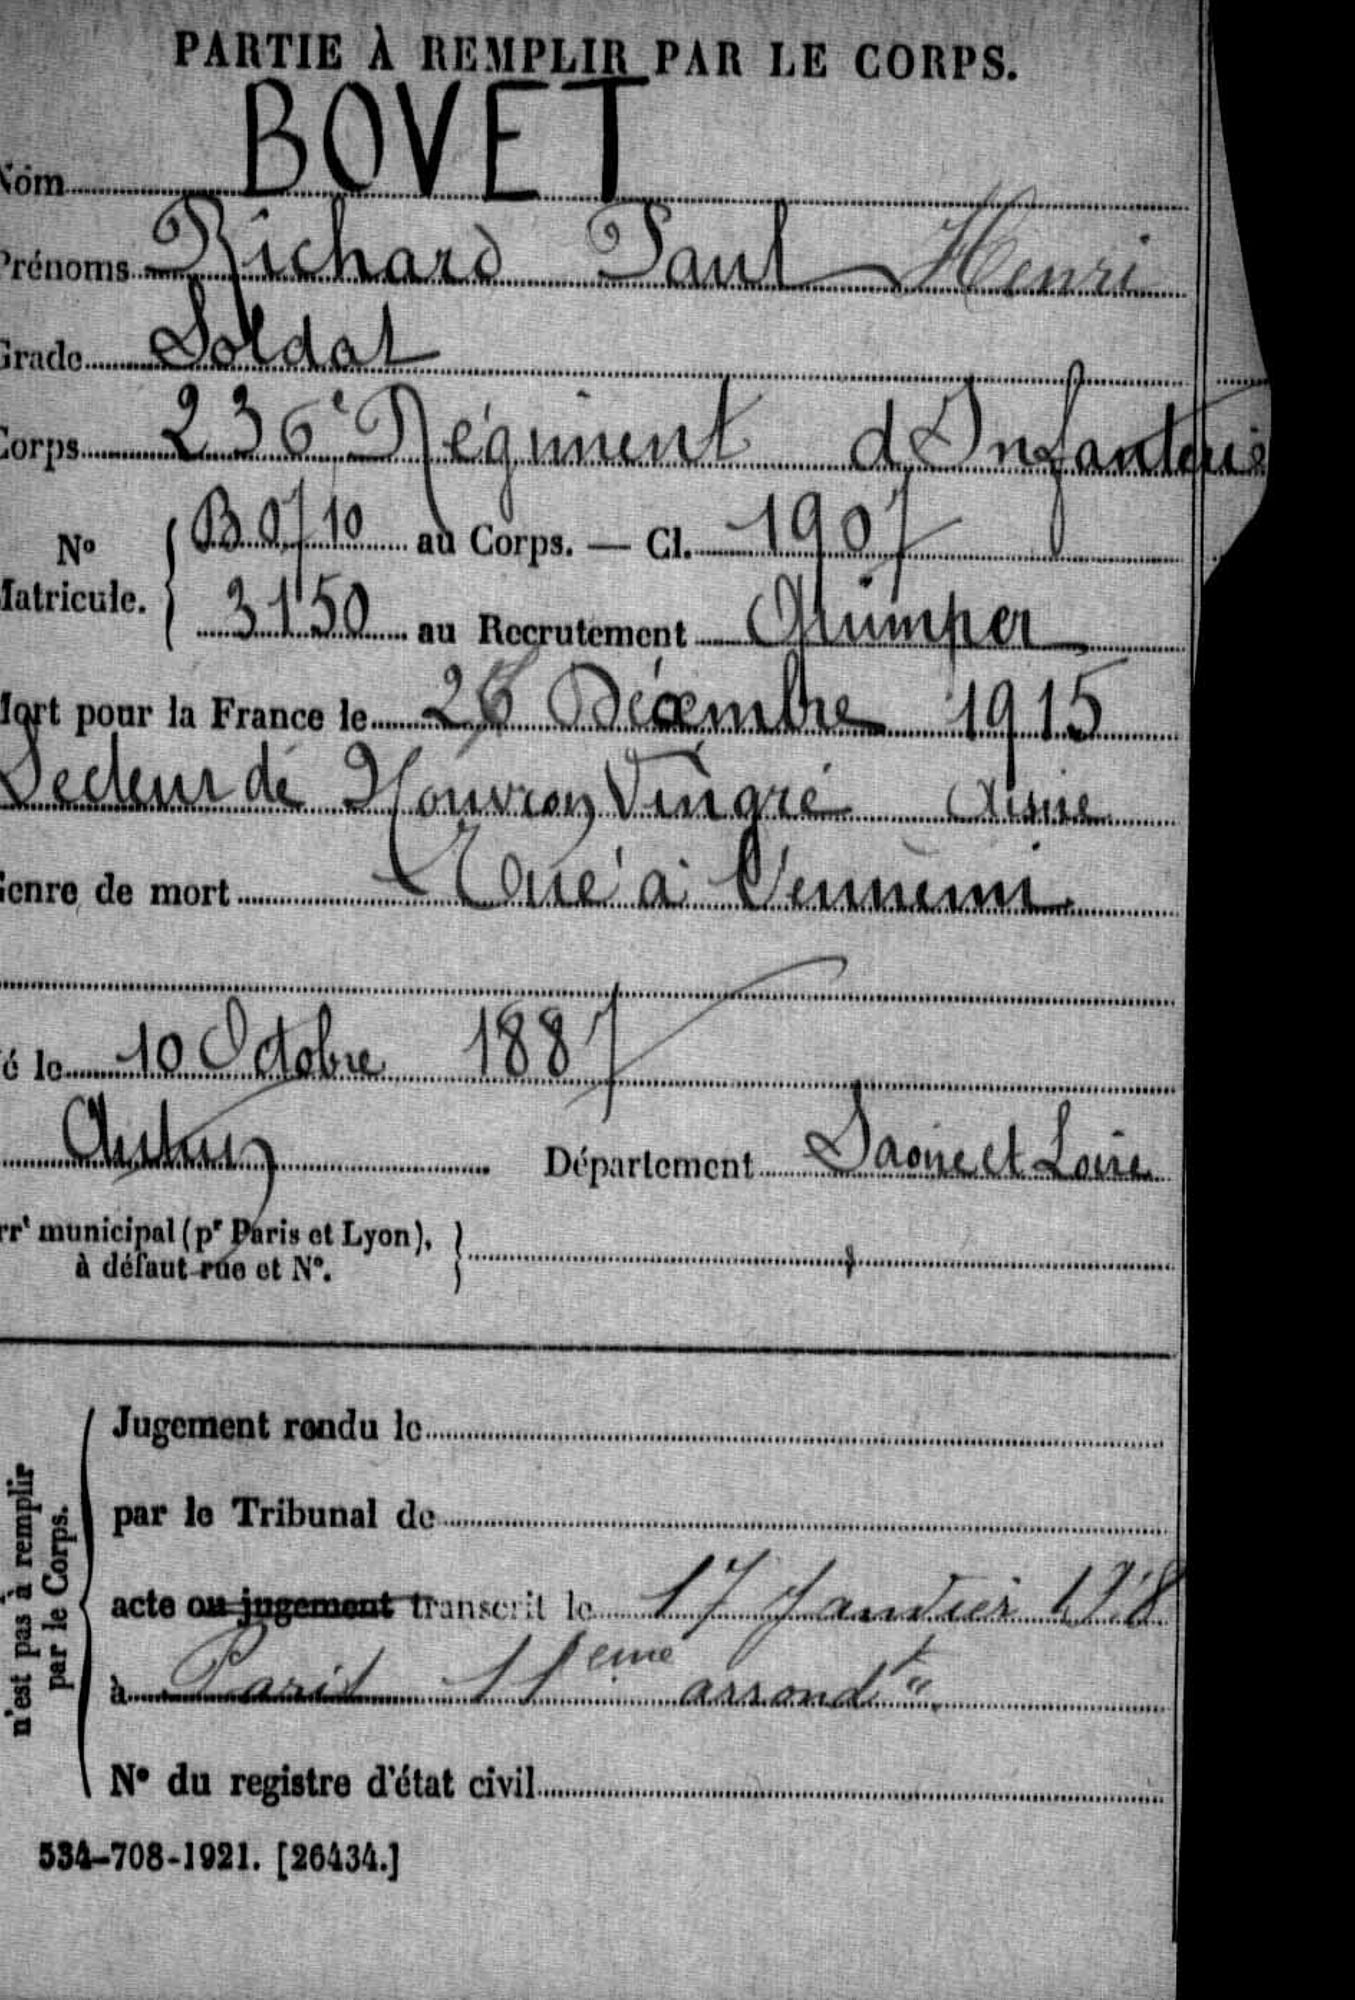 PARTIE À REMPLIR PAR LE CORPS.
Nom BOVET
Prénoms Richard Paul Henri
Grade Soldat
Corps 236e Régiment d'Infanterie
No Matricule. { B 0710 au Corps. — Cl. 1907
3150 au Recrutement Quimper
Mort pour la France le 26 Décembre 1915
Secteur de Nouvron Vingré Aisne
Genre de mort Tué à l'ennemi
é le 10 Octobre 1887
Autun Département Saône et Loire
rrt municipal (pr Paris et Lyon), }
à défaut rue et No.
n'est pas à remplir
par le Corps.
Jugement rendu le
par le Tribunal de
acte ou jugement transcrit le 17 Janvier
à Paris 11eme arrondt
No du registre d'état civil
534-708-1921. [26434.]